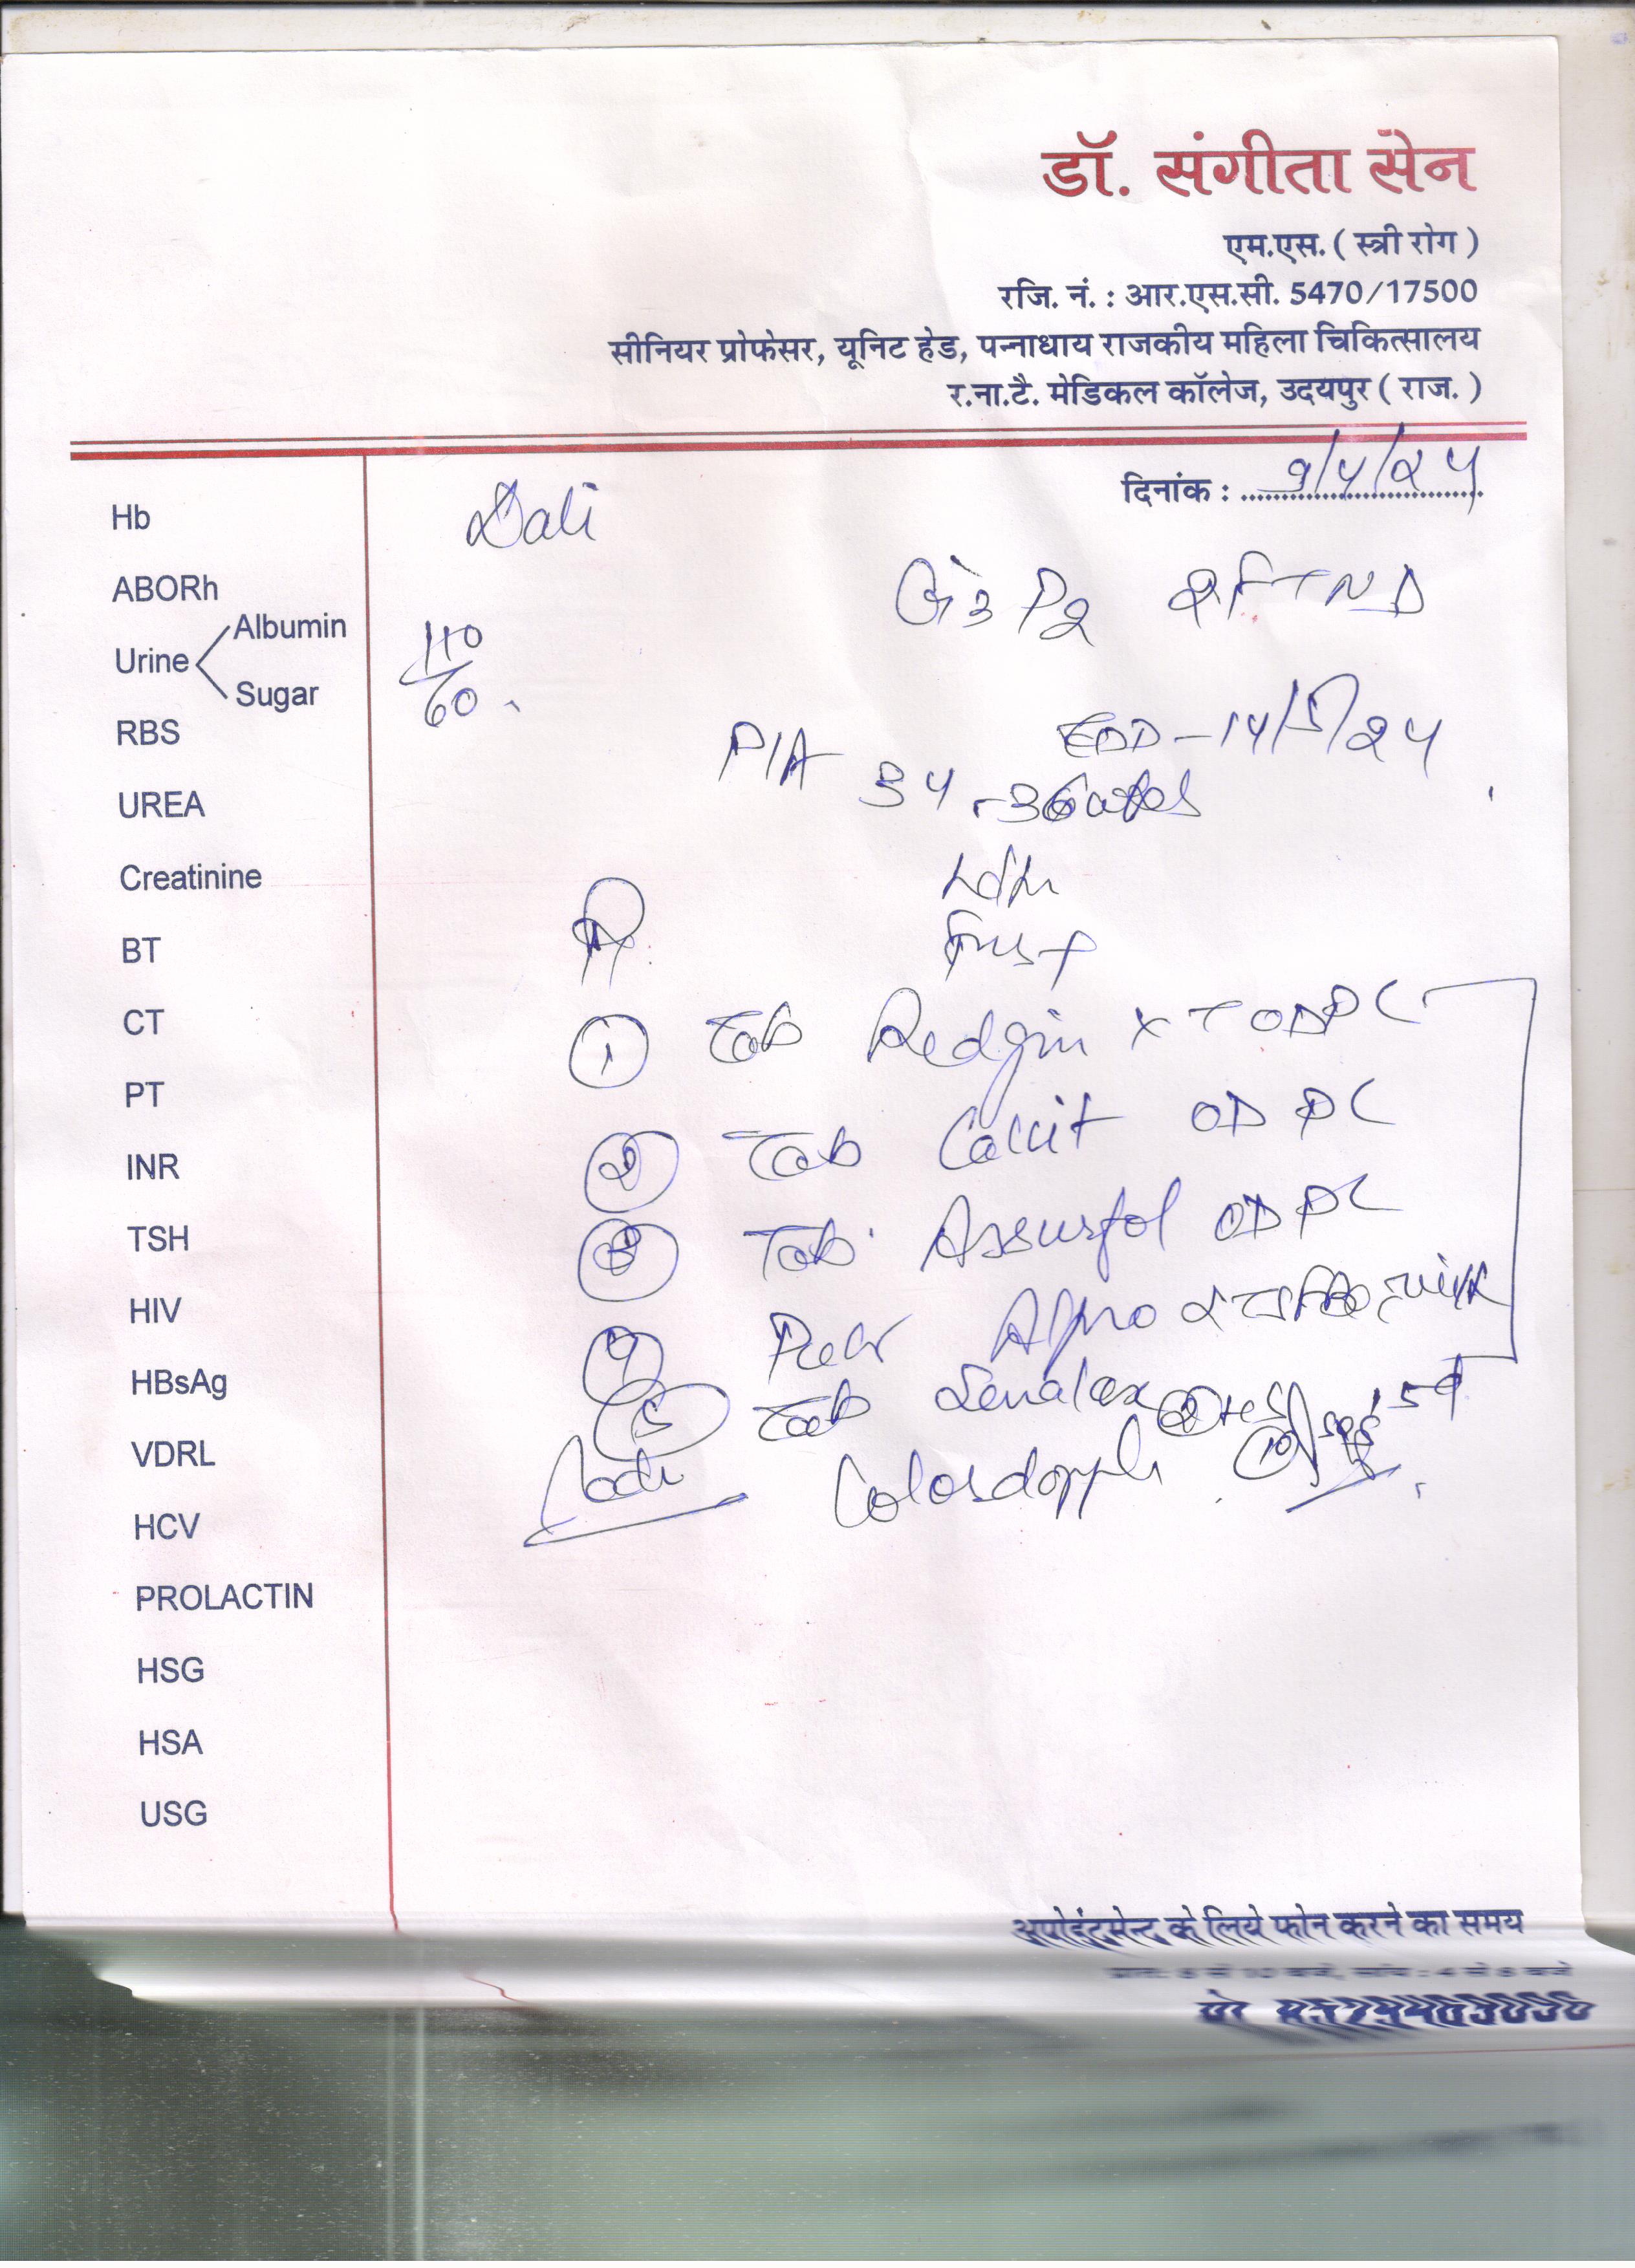 डॉ. संगीता सेन
एम.एस. ( स्त्री रोग )
रजि. नं. : आर.एस.सी. 5470/17500
सीनियर प्रोफेसर, यूनिट हेड, पन्नाधाय राजकीय महिला चिकित्सालय
र.ना.टै. मेडिकल कॉलेज, उदयपुर ( राज. )
दिनांक : 9/4/24
Dali
G3 P2 2FTND
110/60
EDD - 14/5/24
P/A 34-36wks
FHS +
1 Tab Redgin XT OD PC
2 Tab OD PC
3 Tab. OD PC
4 Alpro
5 Tab
Adv Colordoppler
Hb
ABORh
Urine Albumin
Sugar
RBS
UREA
Creatinine
BT
CT
PT
INR
TSH
HIV
HBsAg
VDRL
HCV
PROLACTIN
HSG
HSA
USG
अपोइंटमेन्ट के लिये फोन करने का समय